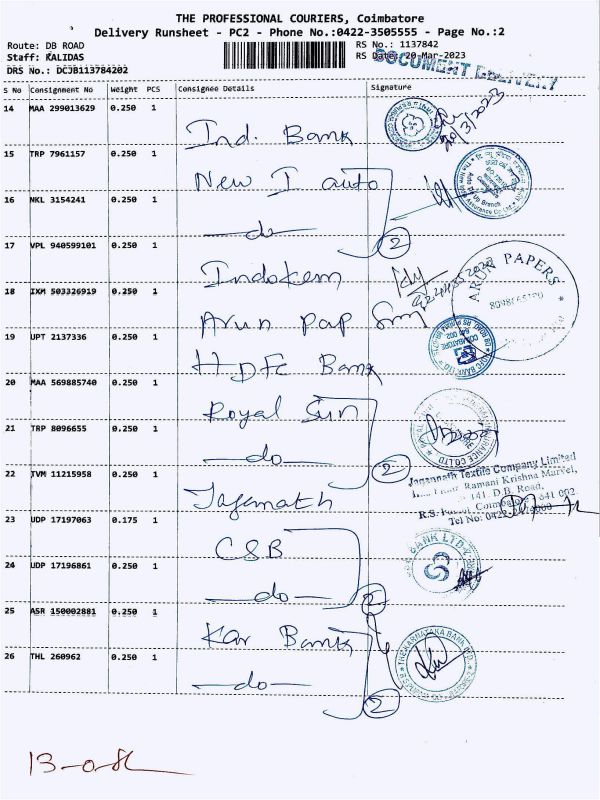 THE PROFESSIONAL COURIERS, Coimbatore
Delivery Runsheet - PC2 - Phone No.:0422-3505555 - Page No.:2
Route: DB ROAD
RS No.: 1137842
Staff: KALIDAS
RS Date: 20-Mar-2023
DRS No.: DCJB113784202
DOCUMENT DELIVERY
S No Consignment No Weight PCS Consignee Details Signature
14 MAA 299013629 0.250 1
Ind. Bank
20/3/2023
15 TRP 7961157 0.250 1
New I auto
16 NKL 3154241 0.250 1
—do—
2
17 VPL 940599101 0.250 1
Indokem
18 IXM 503326919 0.250 1
Arun Pap
ARUN PAPERS
19 UPT 2137336 0.250 1
HDFC Bank
20 MAA 569885740 0.250 1
Royal Sun
21 TRP 8096655 0.250 1
—do—
2
22 TVM 11215958 0.250 1
Jagannath
Jagannath Textile Company Limited
Ramani Krishna Marvel,
141, D.B. Road,
Coimbatore 641 002
Tel No: 0422-
23 UDP 17197063 0.175 1
CSB
BANK LTD
24 UDP 17196861 0.250 1
—do—
2
25 ASR 150002881 0.250 1
Kar Bank
THE KARNATAKA BANK LTD.
26 THL 260962 0.250 1
—do—
2